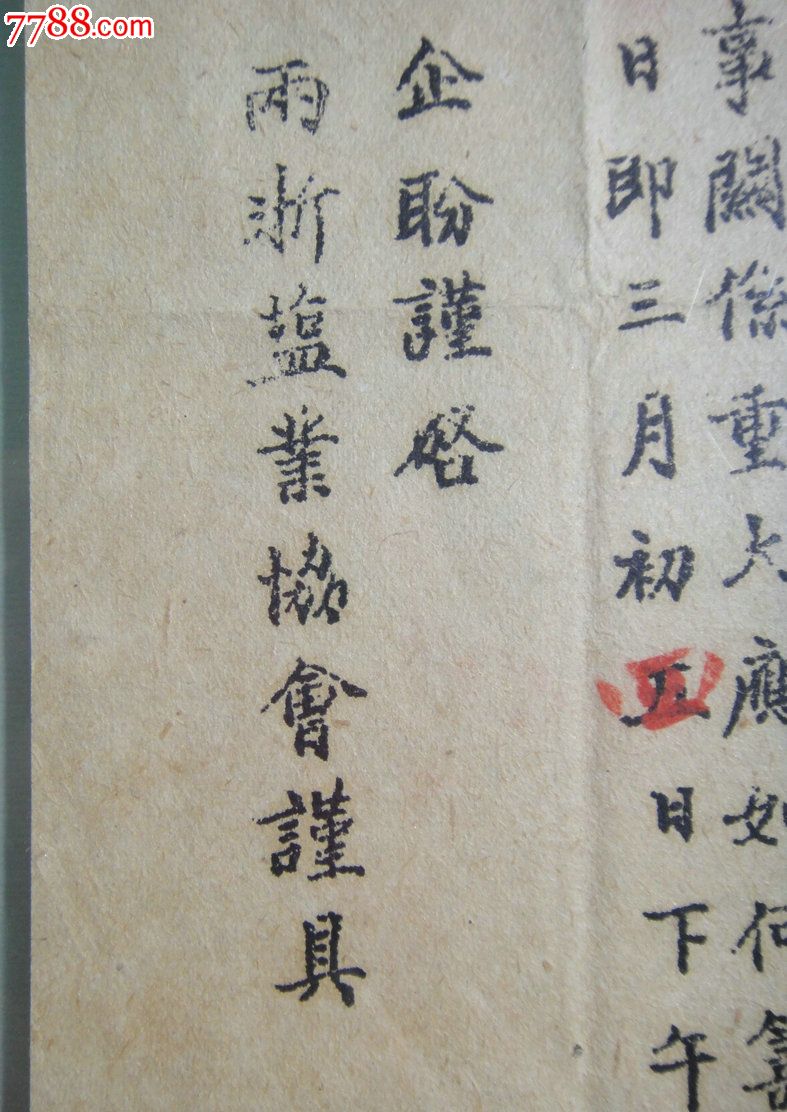 7788.com
事關係重大應如何籌
日即三月初五日下午
企盼謹啓
兩浙塩業協會謹具